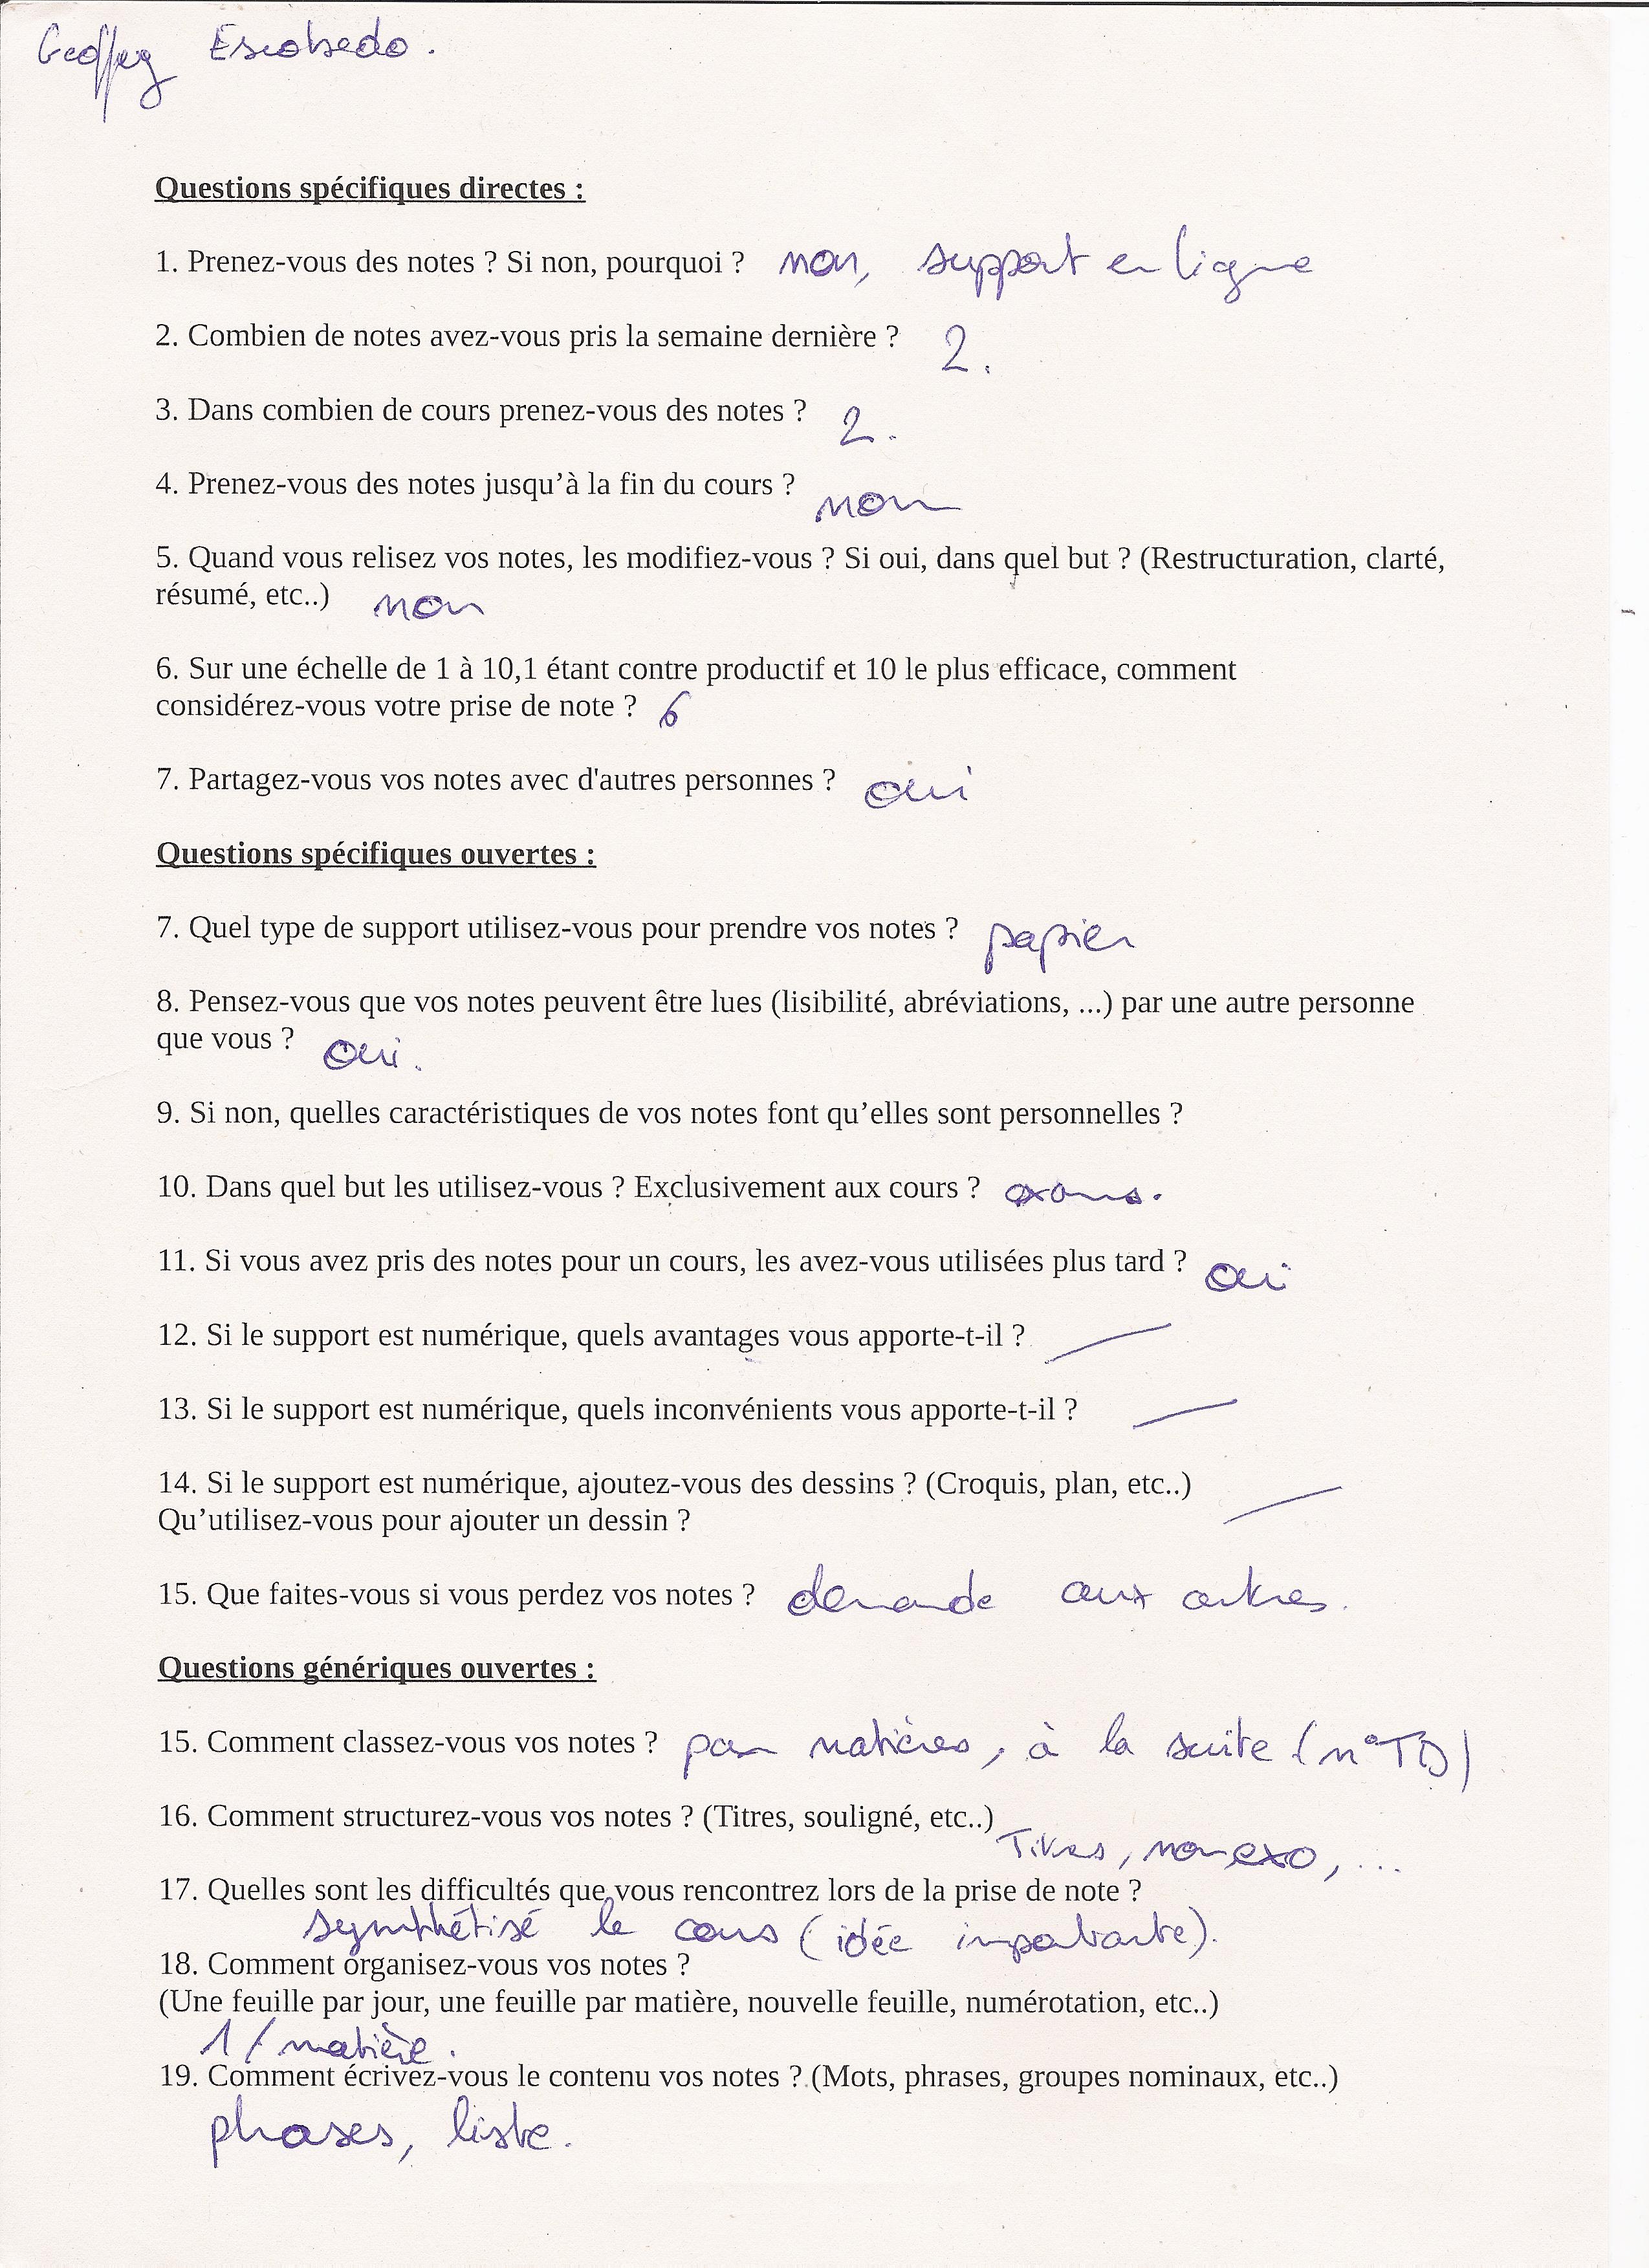 Geoffrey Escobedo.
Questions spécifiques directes :
1. Prenez-vous des notes ? Si non, pourquoi ? non, support en ligne
2. Combien de notes avez-vous pris la semaine dernière ? 2.
3. Dans combien de cours prenez-vous des notes ? 2.
4. Prenez-vous des notes jusqu’à la fin du cours ? non
5. Quand vous relisez vos notes, les modifiez-vous ? Si oui, dans quel but ? (Restructuration, clarté,
résumé, etc..) non
6. Sur une échelle de 1 à 10,1 étant contre productif et 10 le plus efficace, comment
considérez-vous votre prise de note ? 6
7. Partagez-vous vos notes avec d'autres personnes ? oui
Questions spécifiques ouvertes :
7. Quel type de support utilisez-vous pour prendre vos notes ? papier
8. Pensez-vous que vos notes peuvent être lues (lisibilité, abréviations, ...) par une autre personne
que vous ? oui.
9. Si non, quelles caractéristiques de vos notes font qu’elles sont personnelles ?
10. Dans quel but les utilisez-vous ? Exclusivement aux cours ? exams.
11. Si vous avez pris des notes pour un cours, les avez-vous utilisées plus tard ? oui
12. Si le support est numérique, quels avantages vous apporte-t-il ?
13. Si le support est numérique, quels inconvénients vous apporte-t-il ?
14. Si le support est numérique, ajoutez-vous des dessins ? (Croquis, plan, etc..)
Qu’utilisez-vous pour ajouter un dessin ?
15. Que faites-vous si vous perdez vos notes ? demande aux autres.
Questions génériques ouvertes :
15. Comment classez-vous vos notes ? par matières, à la suite (n°TD)
16. Comment structurez-vous vos notes ? (Titres, souligné, etc..)
Titres, nom exo, ...
17. Quelles sont les difficultés que vous rencontrez lors de la prise de note ?
synthétisé le cours (idée importante).
18. Comment organisez-vous vos notes ?
(Une feuille par jour, une feuille par matière, nouvelle feuille, numérotation, etc..)
1 / matière.
19. Comment écrivez-vous le contenu vos notes ? (Mots, phrases, groupes nominaux, etc..)
phases, liste.